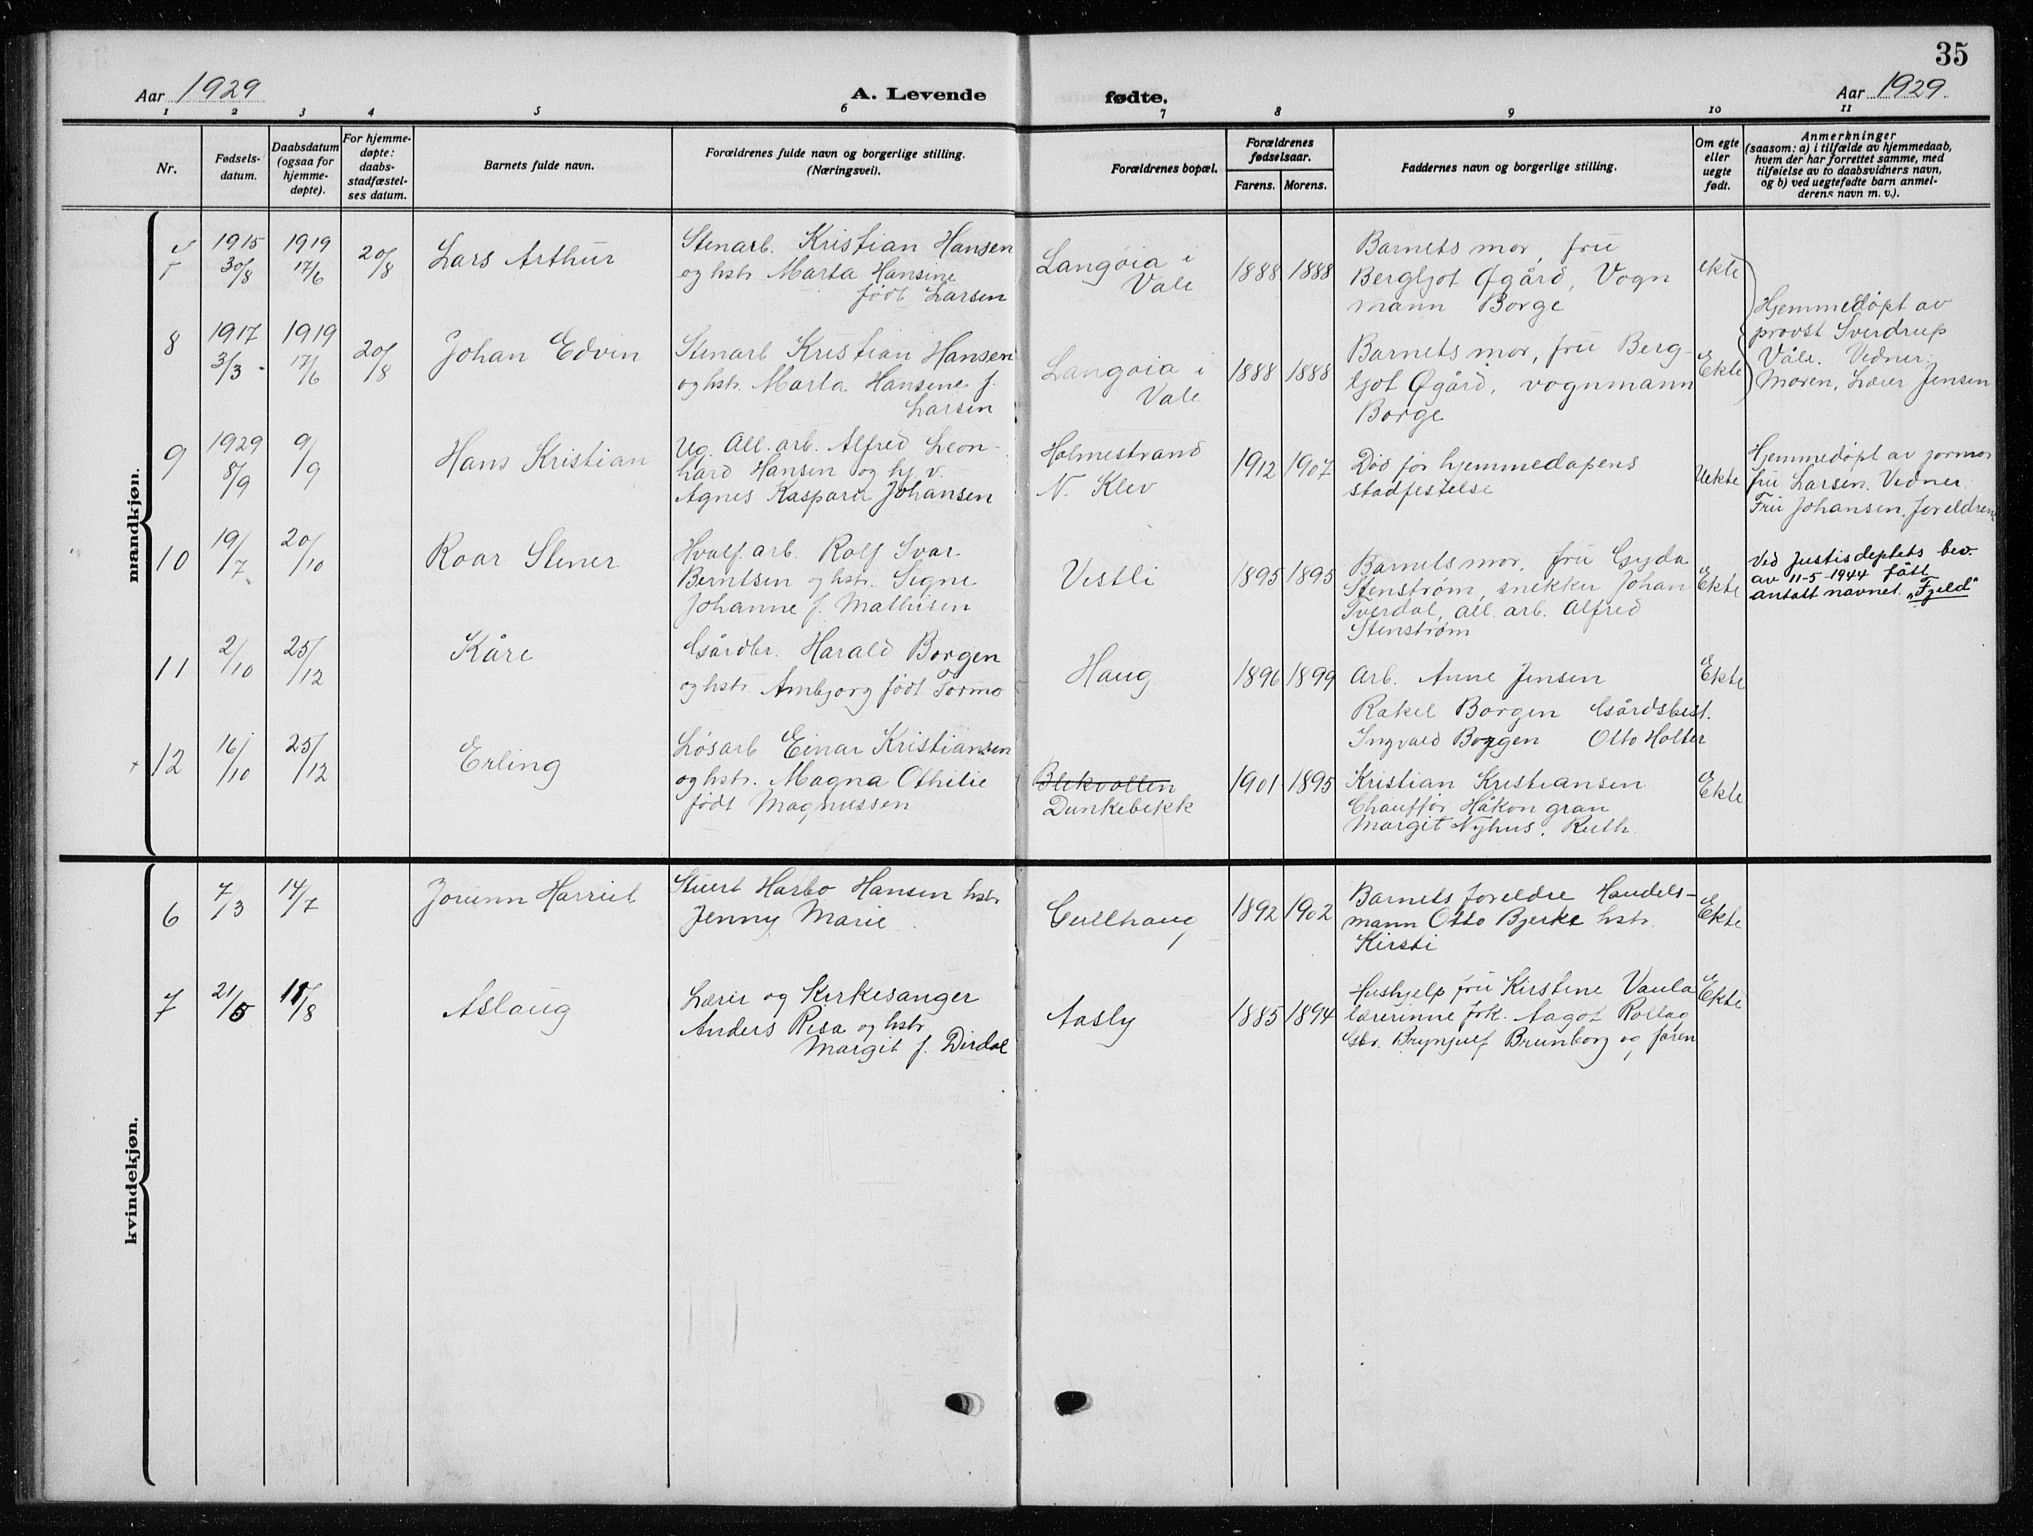 35
Aar 1929
A. Levende
fødte.
Aar 1929.
1 2 3 4 5 6 7 8 9 10 11
Nr.
Fødsels-
datum.
Daabsdatum
(ogsaa for
hjemme-
døpte).
For hjemme-
døpte:
daabs-
stadfæstel-
ses datum.
Barnets fulde navn.
Forældrenes fulde navn og borgerlige stilling.
(Næringsvei).
Forældrenes bopæl.
Forældrenes
fødselsaar.
Farens. Morens.
Faddernes navn og borgerlige stilling.
Om egte
eller
uegte
født.
Anmerkninger
(saasom: a) i tilfælde av hjemmedaab,
hvem der har forrettet samme, med
tilføielse av to daabsvidners navn,
og b) ved uegtefødte barn anmel-
derens navn m. v.).
mandkjøn.
7
1915
30/8
1919
17/6
20/8
Lars Arthur
Stenarb. Kristian Hansen
og hstr Marta Hansine
født Larsen
Langøia i
Vale
1888 1888
Barnets mor, fru
Bergljot Øgård, Vogn
mann Borge
ekte
8
1917
3/3
1919
17/6
20/8
Johan Edvin
Stenarb Kristian Hansen
og hstr. Marta Hansine f.
Larsen
Langøia i
Vale
1888 1888
Barnets mor, fru Berg-
ljot Øgård, vognmann
Borge
Ekte
Hjemmedøpt av
provst Sverdrup
Våle. Vidner:
Moren, Lærer Jensen
9
1929
8/9
9/9
Hans Kristian
Ug. All. arb. Alfred Leon-
hard Hansen og hj. v.
Agnes Kaspara Johansen
Holmestrand
N. Klev
1912 1907
Død før hjemmedåpens
stadfestelse
Uekte
Hjemmedøpt av jormor
fru Larsen. Vidner:
Fru Johansen, foreldrene
10
19/7
20/10
Roar Stener
Hvalf. arb. Rolf Svar
Berntsen og hstr. Signe
Johanne f. Mathisen
Vestli
1895 1895
Barnets mor, fru Gyda
Stenstrøm, snekker Johan
Sverdal, all. arb. Alfred
Stenstrøm
Ekte
Ved Justisdeptets bev.
av 11-5-1944 fått
antatt navnet „Fjeld“
11
2/10
25/12
Kåre
Gårdbr. Harald Borgen
og hstr. Ambjørg født Tormo
Haug
1896 1899
Arb. Anne Jensen
Rakel Borgen Gårdsbest.
Ingvald Borgen Otto Holter
Ekte
12
16/10
25/12
Erling
Løsarb Einar Kristiansen
og hstr. Magna Othilie
født Magnussen
Blekvollen
Dunkebekk
1901 1895
Kristian Kristiansen
Chauffør Håkon gran
Margit Nyhus. Ruth.
Ekte
kvindekjøn.
6
7/3
14/7
Jorunn Harriet
Stuert Harbo Hansen hstr
Jenny Marie
Gullhaug
1892 1902
Barnets foreldre Handels-
mann Otto Bjerke hstr.
Kirsti
Ekte
7
21/5
11/8
Aslaug
Lærer og Kirkesanger
Anders Risa og hstr
Margit f. Dirdal
Aasly
1885 1894
Hushjelp fru Kirstine Vaula
lærerinne frk. Aagot Rollag
Gbr. Brynjulf Brunborg og faren
Ekte